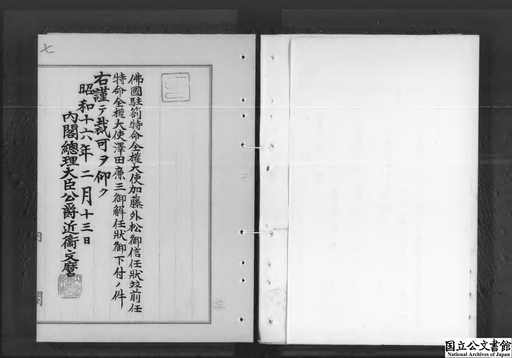 七
佛國駐箚特命全權大使加藤外松御信任狀竝前任
特命全權大使澤田廉三御解任狀御下付ノ件
右謹テ裁可ヲ仰ク
昭和十六年二月十三日
內閣總理大臣公爵近衞文麿
国立公文書館
National Archives of Japan